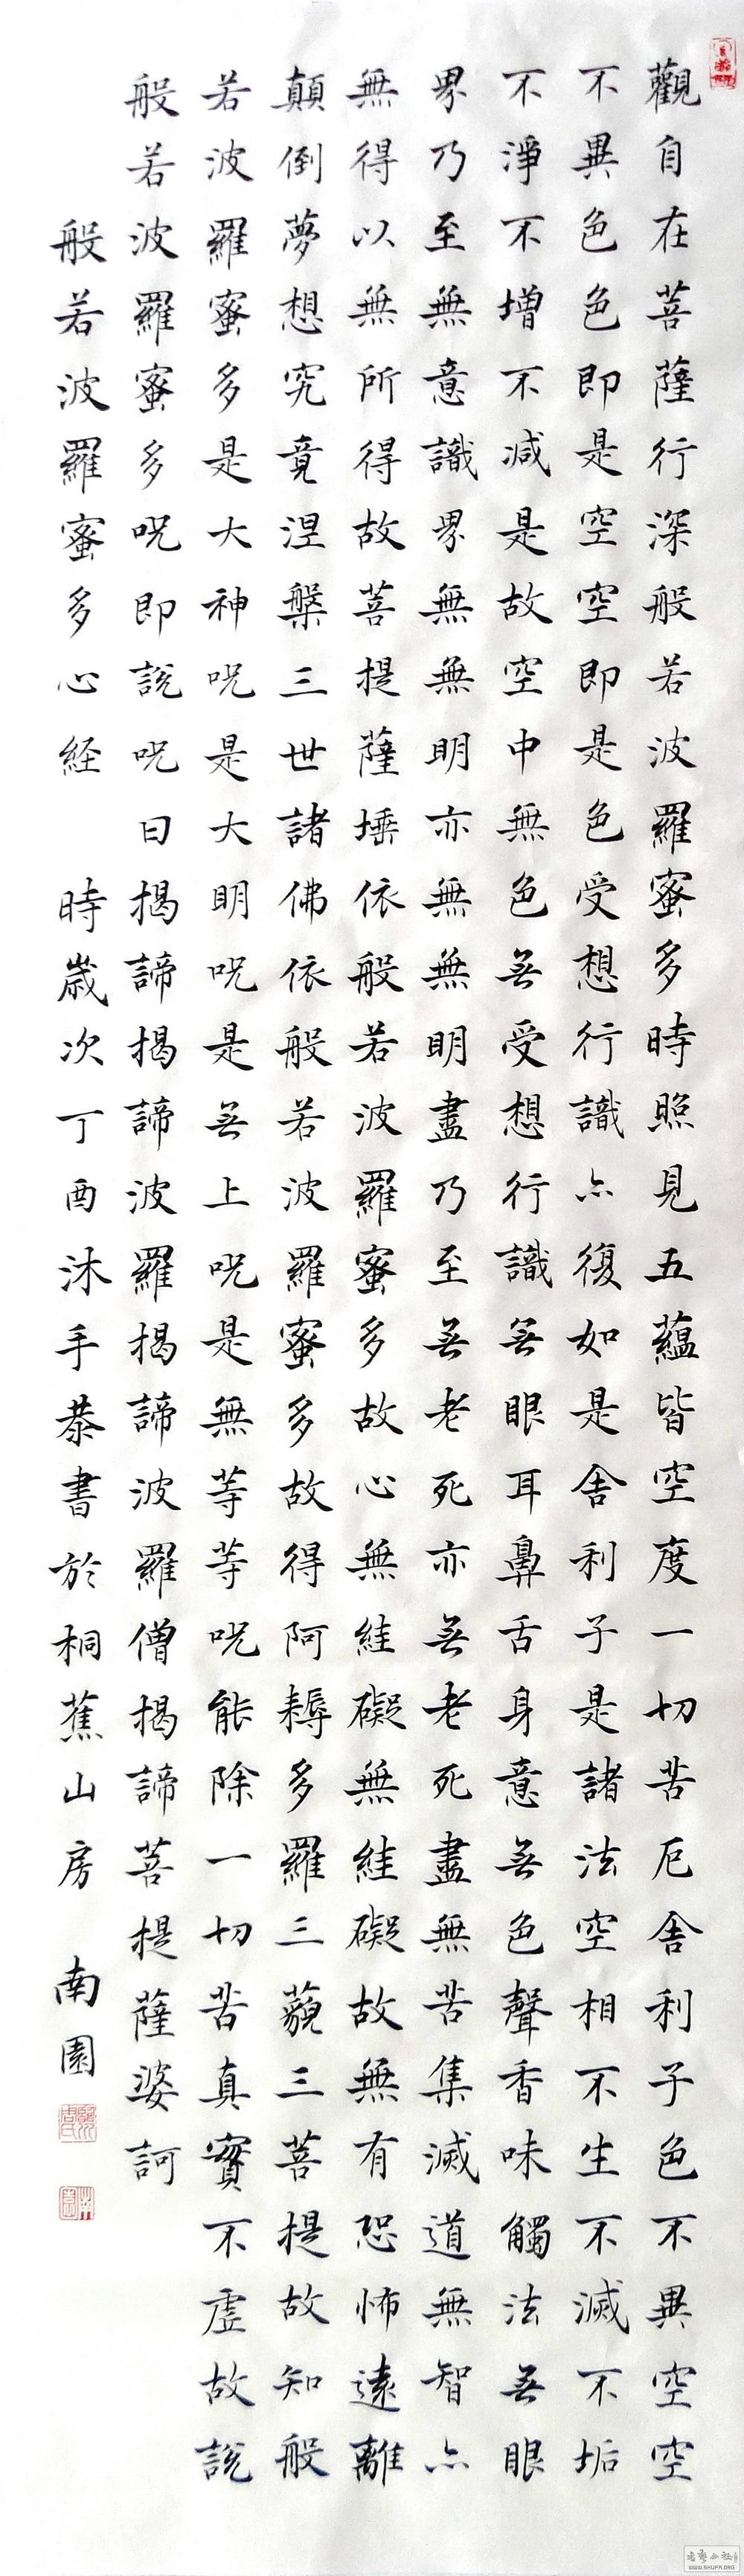 觀自在菩薩行深般若波羅蜜多時照見五蘊皆空度一切苦厄舍利子色不異空空
不異色色即是空空即是色受想行識亦復如是舍利子是諸法空相不生不滅不垢
不淨不增不減是故空中無色无受想行識无眼耳鼻舌身意无色聲香味觸法无眼
界乃至無意識界無無明亦無無明盡乃至无老死亦无老死盡無苦集滅道無智亦
無得以無所得故菩提薩埵依般若波羅蜜多故心無絓礙無絓礙故無有恐怖遠離
顛倒夢想究竟涅槃三世諸佛依般若波羅蜜多故得阿耨多羅三藐三菩提故知般
若波羅蜜多是大神呪是大明呪是无上呪是無等等呪能除一切苦真實不虛故說
般若波羅蜜多呪即說呪曰揭諦揭諦波羅揭諦波羅僧揭諦菩提薩婆訶
般若波羅蜜多心経 時歲次丁酉沐手恭書於桐蕉山房 南園
WWW.SHUFR.ORG